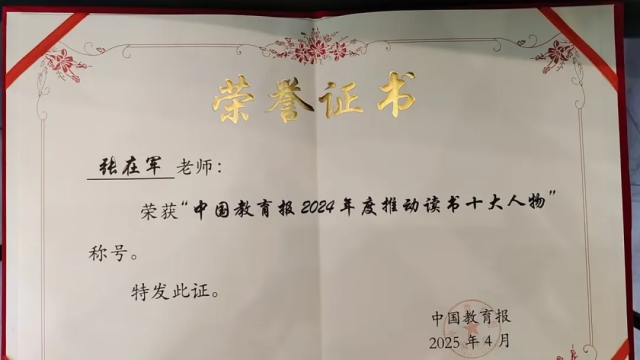 荣誉证书
张在军 老师：
荣获“中国教育报2024年度推动读书十大人物”
称号。
特发此证。
中国教育报
2025年4月